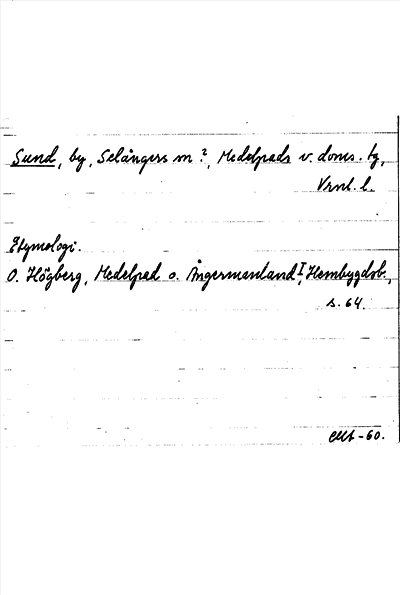 Sund, by, Selångers sn ?, Medelpads v. doms. tg,
Vrnl. l.
Etymologi.
O. Högberg, Medelpad o. Ångermanland I, Hembygdsb.,
s. 64.
-60.